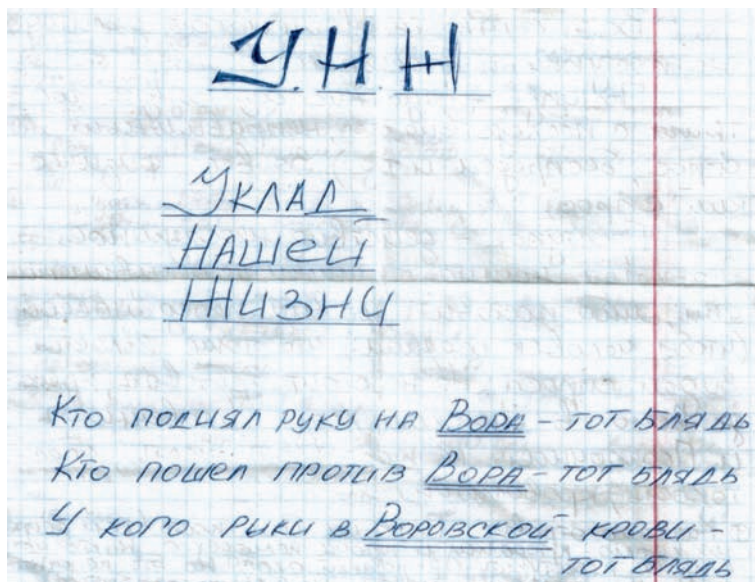 У. Н. Ж
Уклад
Нашей
Жизни
Кто поднял руку на Вора - тот блядь
Кто пошел против Вора - тот блядь
У кого руки в Воровской крови -
тот блядь